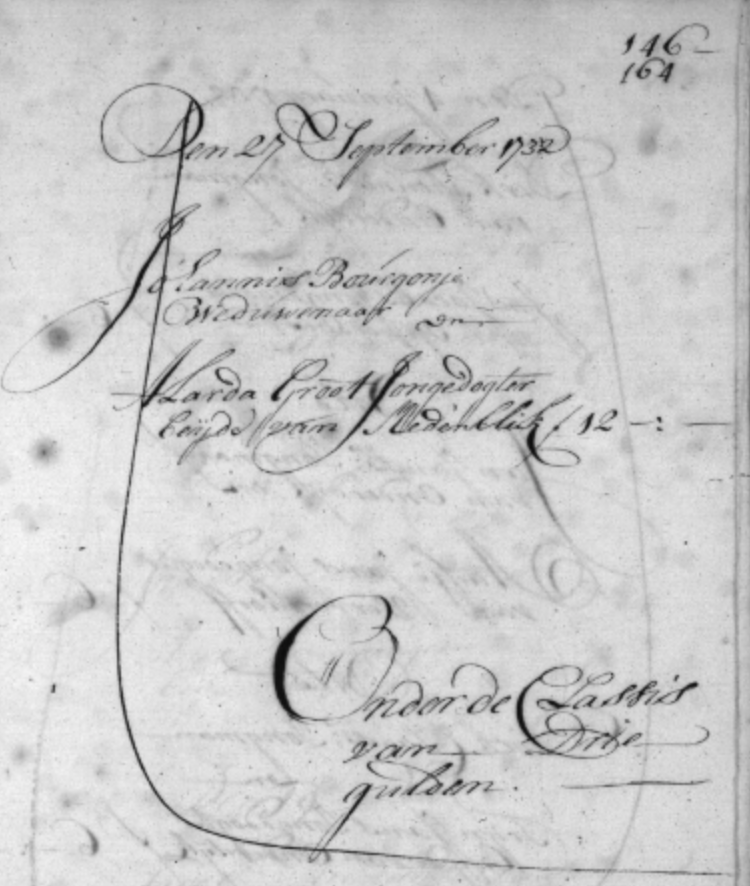 146
164
Den 27 September 1732
Johannis Bourgonje
Weduwenaar en
Alarda Groot Jongedogter
beijde van Medenblik f 12 –:–
Onder de Classis
van Drie
gulden.